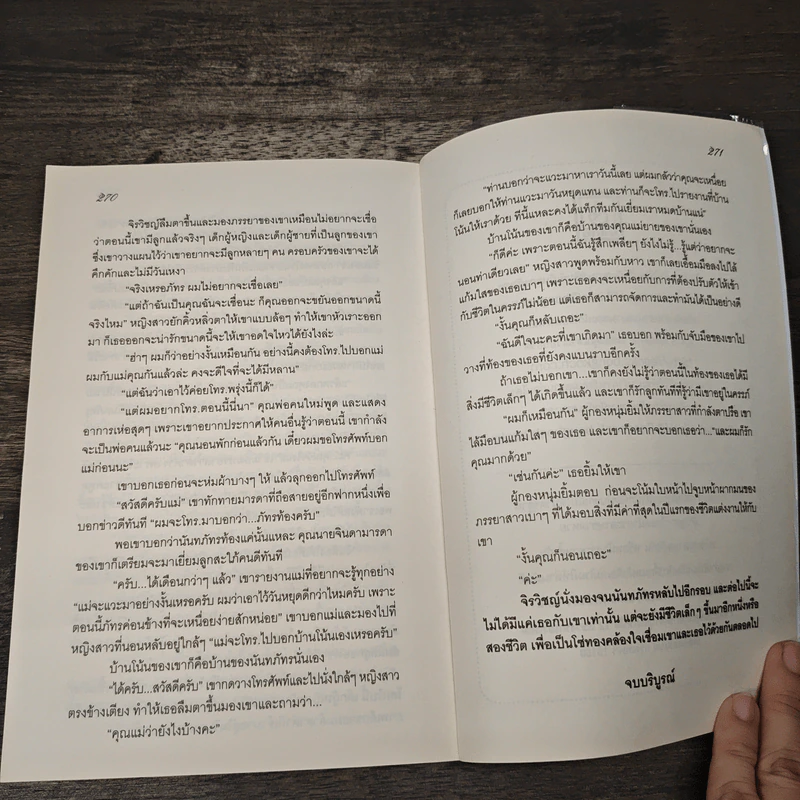 270
จิรวิชญ์ลืมตาขึ้นและมองภรรยาของเขาเหมือนไม่อยากจะเชื่อ
ว่าตอนนี้เขามีลูกแล้วจริงๆ เด็กผู้หญิงและเด็กผู้ชายที่เป็นลูกของเขา
ซึ่งเขาวางแผนไว้ว่าเขาอยากจะมีลูกหลายๆ คน ครอบครัวของเขาจะได้
คึกคักและไม่มีวันเหงา
“จริงเหรอภัทร ผมไม่อยากจะเชื่อเลย”
“แต่ถ้าฉันเป็นคุณฉันจะเชื่อนะ ก็คุณออกจะขยันออกขนาดนี้
จริงไหม” หญิงสาวยักคิ้วหลิ่วตาให้เขาแบบล้อๆ ทำให้เขาหัวเราะออก
มา ก็เธอออกจะน่ารักขนาดนี้จะให้เขาอดใจไหวได้ยังไงล่ะ
“ฮ่าๆ ผมก็ว่าอย่างงั้นเหมือนกัน อย่างนี้คงต้องโทร.ไปบอกแม่
ผมกับแม่คุณกันแล้วล่ะ คงจะดีใจที่จะได้มีหลาน”
“แต่ฉันว่าเอาไว้ค่อยโทร.พรุ่งนี้ก็ได้”
“แต่ผมอยากโทร.ตอนนี้นี่นา” คุณพ่อคนใหม่พูด และแสดง
อาการเห่อสุดๆ เพราะเขาอยากประกาศให้คนอื่นรู้ว่าตอนนี้ เขากำลัง
จะเป็นพ่อคนแล้วนะ “คุณนอนพักก่อนแล้วกัน เดี๋ยวผมขอโทรศัพท์บอก
แม่ก่อนนะ”
เขาบอกเธอก่อนจะห่มผ้าบางๆ ให้ แล้วลุกออกไปโทรศัพท์
“สวัสดีครับแม่” เขาทักทายมารดาที่ถือสายอยู่อีกฟากหนึ่งเพื่อ
บอกข่าวดีทันที “ผมจะโทร.มาบอกว่า...ภัทรท้องครับ”
พอเขาบอกว่านันทภัทรท้องแค่นั้นแหละ คุณนายจินดามารดา
ของเขาก็เตรียมจะมาเยี่ยมลูกสะใภ้คนดีทันที
“ครับ...ได้เดือนกว่าๆ แล้ว” เขารายงานแม่ที่อยากจะรู้ทุกอย่าง
“แม่จะแวะมาอย่างงั้นเหรอครับ ผมว่าเอาไว้วันหยุดดีกว่าไหมครับ เพราะ
ตอนนี้ภัทรค่อนข้างที่จะเหนื่อยง่ายสักหน่อย” เขาบอกแม่และมองไปที่
หญิงสาวที่นอนหลับอยู่ใกล้ๆ “แม่จะโทร.ไปบอกบ้านโน้นเองเหรอครับ”
บ้านโน้นของเขาก็คือบ้านของนันทภัทรนั่นเอง
“ได้ครับ...สวัสดีครับ” เขากดวางโทรศัพท์และไปนั่งใกล้ๆ หญิงสาว
ตรงข้างเตียง ทำให้เธอลืมตาขึ้นมองเขาและถามว่า...
“คุณแม่ว่ายังไงบ้างคะ”
271
“ท่านบอกว่าจะแวะมาหาเราวันนี้เลย แต่ผมกลัวว่าคุณจะเหนื่อย
ก็เลยบอกให้ท่านแวะมาวันหยุดแทน และท่านก็จะโทร.ไปรายงานที่บ้าน
โน้นให้เราด้วย ทีนี้แหละคงได้แท็กทีมกันเยี่ยมเราหมดบ้านแน่”
บ้านโน้นของเขาก็คือบ้านของคุณแม่ยายของเขานั่นเอง
“ก็ดีค่ะ เพราะตอนนี้ฉันรู้สึกเพลียๆ ยังไงไม่รู้...รู้แต่ว่าอยากจะ
นอนท่าเดียวเลย” หญิงสาวพูดพร้อมกับหาว เขาก็เลยเอื้อมมือลงไปไล้
แก้มใสของเธอเบาๆ เพราะเธอคงจะเหนื่อยกับการที่ต้องปรับตัวให้เข้า
กับชีวิตในครรภ์ไม่น้อย แต่เธอก็สามารถจัดการและทำมันได้เป็นอย่างดี
“งั้นคุณก็หลับเถอะ”
“ฉันดีใจนะคะที่เขาเกิดมา” เธอบอก พร้อมกับจับมือของเขาไป
วางที่ท้องของเธอที่ยังคงแบนราบอีกครั้ง
ถ้าเธอไม่บอกเขา...เขาก็คงยังไม่รู้ว่าตอนนี้ในท้องของเธอได้มี
สิ่งมีชีวิตเล็กๆ ได้เกิดขึ้นแล้ว และเขาก็รักลูกทันทีที่รู้ว่ามีเขาอยู่ในครรภ์
“ผมก็เหมือนกัน” ผู้กองหนุ่มยิ้มให้ภรรยาสาวที่กำลังตาปรือ เขา
ไล้มือบนแก้มใสๆ ของเธอ และเขาก็อยากจะบอกเธอว่า...“และก็รัก
คุณมากด้วย”
“เช่นกันค่ะ” เธอยิ้มให้เขา
ผู้กองหนุ่มยิ้มตอบ ก่อนจะโน้มใบหน้าไปจูบหน้าผากมนของ
ภรรยาสาวเบาๆ ที่ได้มอบสิ่งที่มีค่าที่สุดในปีแรกของชีวิตแต่งงานให้กับ
เขา
“งั้นคุณก็นอนเถอะ”
“ค่ะ”
จิรวิชญ์นั่งมองจนนันทภัทรหลับไปอีกรอบ และต่อไปนี้จะ
ไม่ได้มีแค่เธอกับเขาเท่านั้น แต่จะยังมีชีวิตเล็กๆ ขึ้นมาอีกหนึ่งหรือ
สองชีวิต เพื่อเป็นโซ่ทองคล้องใจเชื่อมเขาและเธอไว้ด้วยกันตลอดไป
จบบริบูรณ์